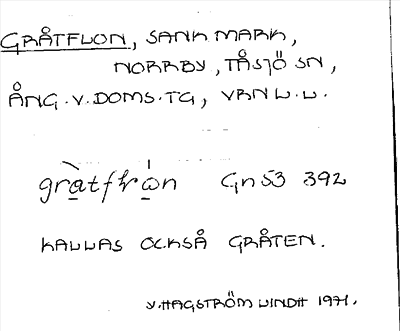 GRÅTFLON, SANK MARK,
NORRBY, TÅSJÖ SN,
ÅNG.V.DOMS.TG, VRN L.L.
gràtfrò̱n Gn 53 392
KALLAS OCKSÅ GRÅTEN.
V.HAGSTRÖM LINDH 1971.